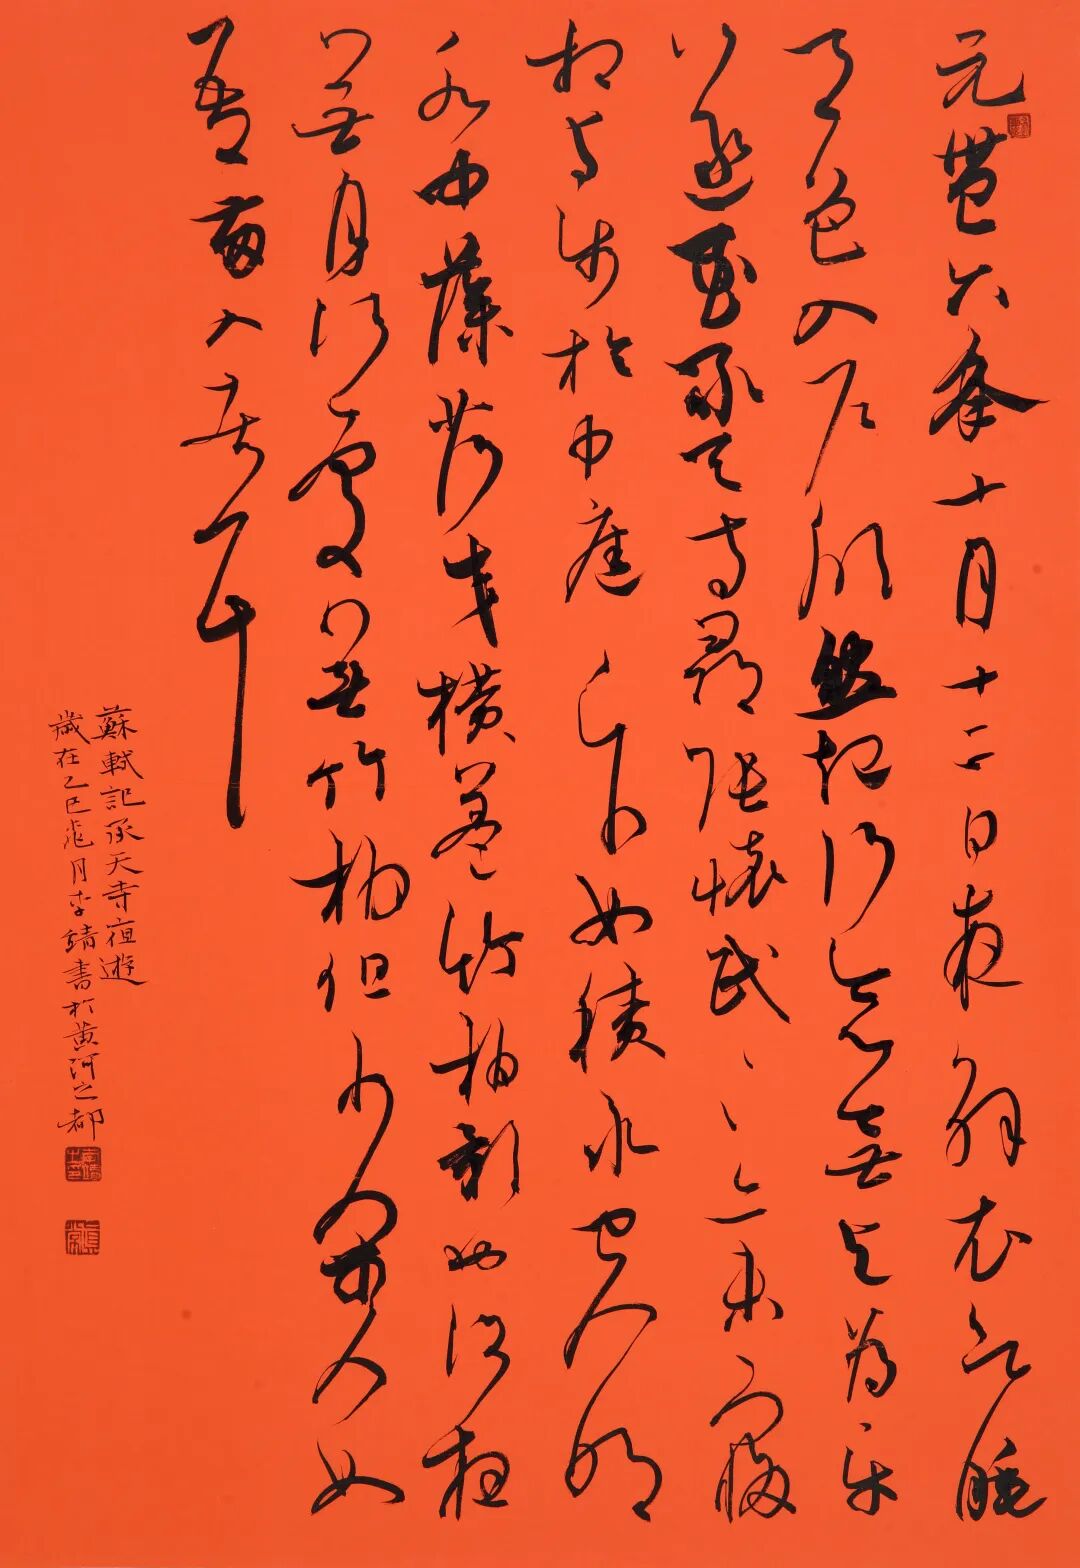 元豐六年十月十二日夜解衣欲睡
月色入戶欣然起行念無与為樂
遂至承天寺尋張懷民亦未寢
相与步於中庭下如積水空明
水中藻荇交橫蓋竹柏影也何夜
無月何處無竹柏但少閑人如
吾兩人者耳
蘇軾記承天寺夜遊
歲在乙巳月李書於黃河之都